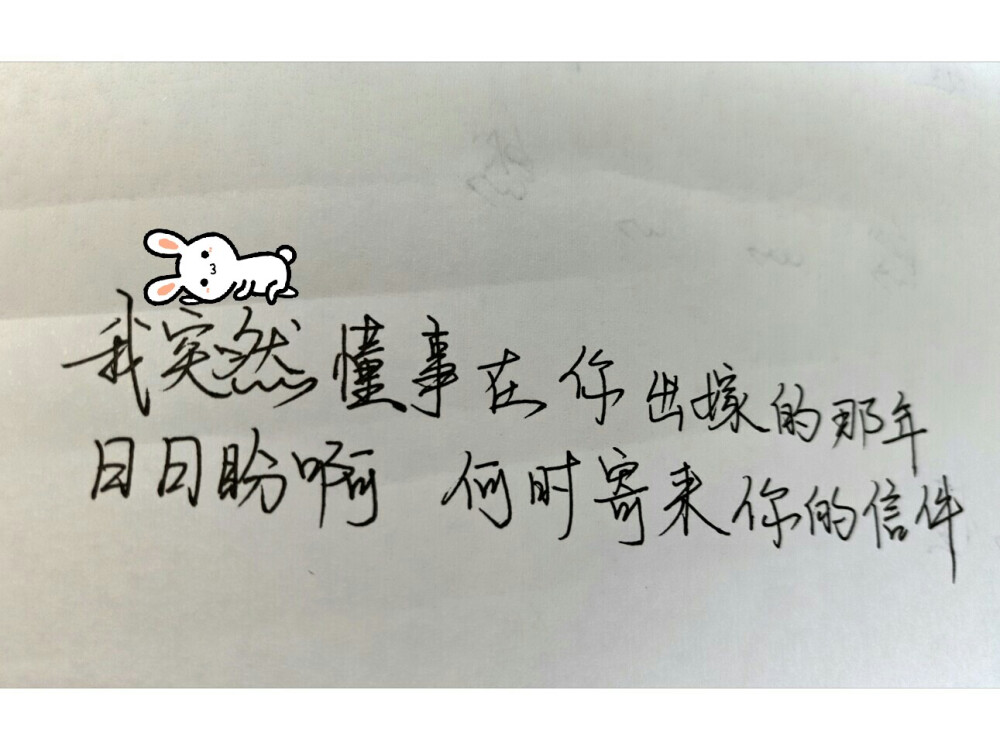 我突然懂事在你出嫁的那年
日日盼啊 何时寄来你的信件